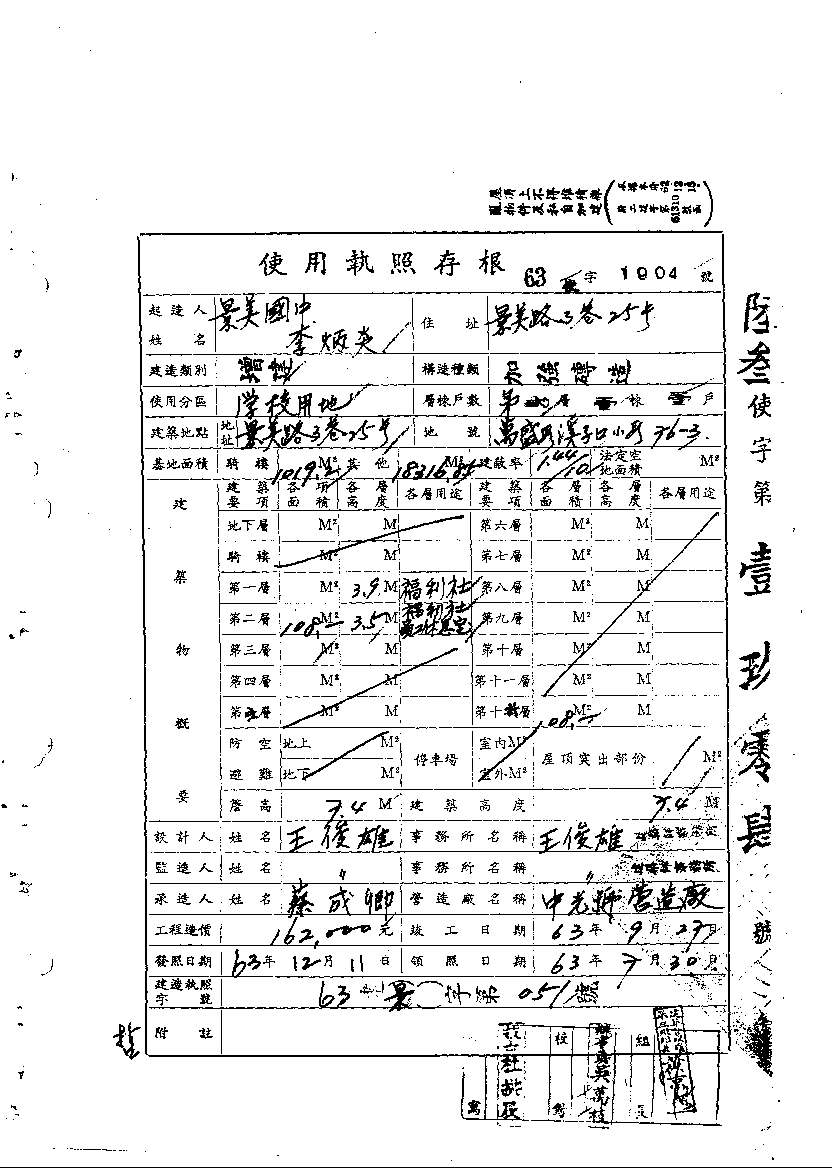 屋頂上不得堆積雜
亂物件及私自加建
使用執照存根 63 使字 1904 號
起造人姓名 景美國中 李炳炎 住址 景美路3巷25號
建造類別 增建 構造種類 加強磚造
使用分區 学校用地 層棟戶數 第 層 棟 戶
建築地點 地址 景美路3巷25号 地號 萬盛段溪子口小段36-3
基地面積 騎樓 M² 其他 M² 建蔽率 法定空地面積 M²
建築物概要 建築要項 各項面積 各層高度 各層用途 建築要項 各項面積 各層高度 各層用途
地下層 M² M 第六層 M² M
騎樓 M² M 第七層 M² M
第一層 M² 3.9 M 福利社 第八層 M² M
第二層 108 M² 3.5 M 福利社 第九層 M² M
第三層 M² M 第十層 M² M
第四層 M² M 第十一層 M² M
第五層 M² M 第十 層 M² M
防空避難 地上 M² 停車場 室內M² 屋頂突出部份 M²
地下 M² 室外M²
簷高 7.4 M 建築高度 7.4 M
設計人 姓名 王俊雄 事務所名稱 王俊雄
監造人 姓名 〃 事務所名稱 〃
承造人 姓名 蔡成卿 營造廠名稱 营造廠
工程造價 162,000元 竣工日期 63年9月27日
發照日期 63年12月11日 領照日期 63年7月30日
建造執照字號 63 景 字第051號
附註
陸叁使字第壹玖零肆號
校對
組長
寫